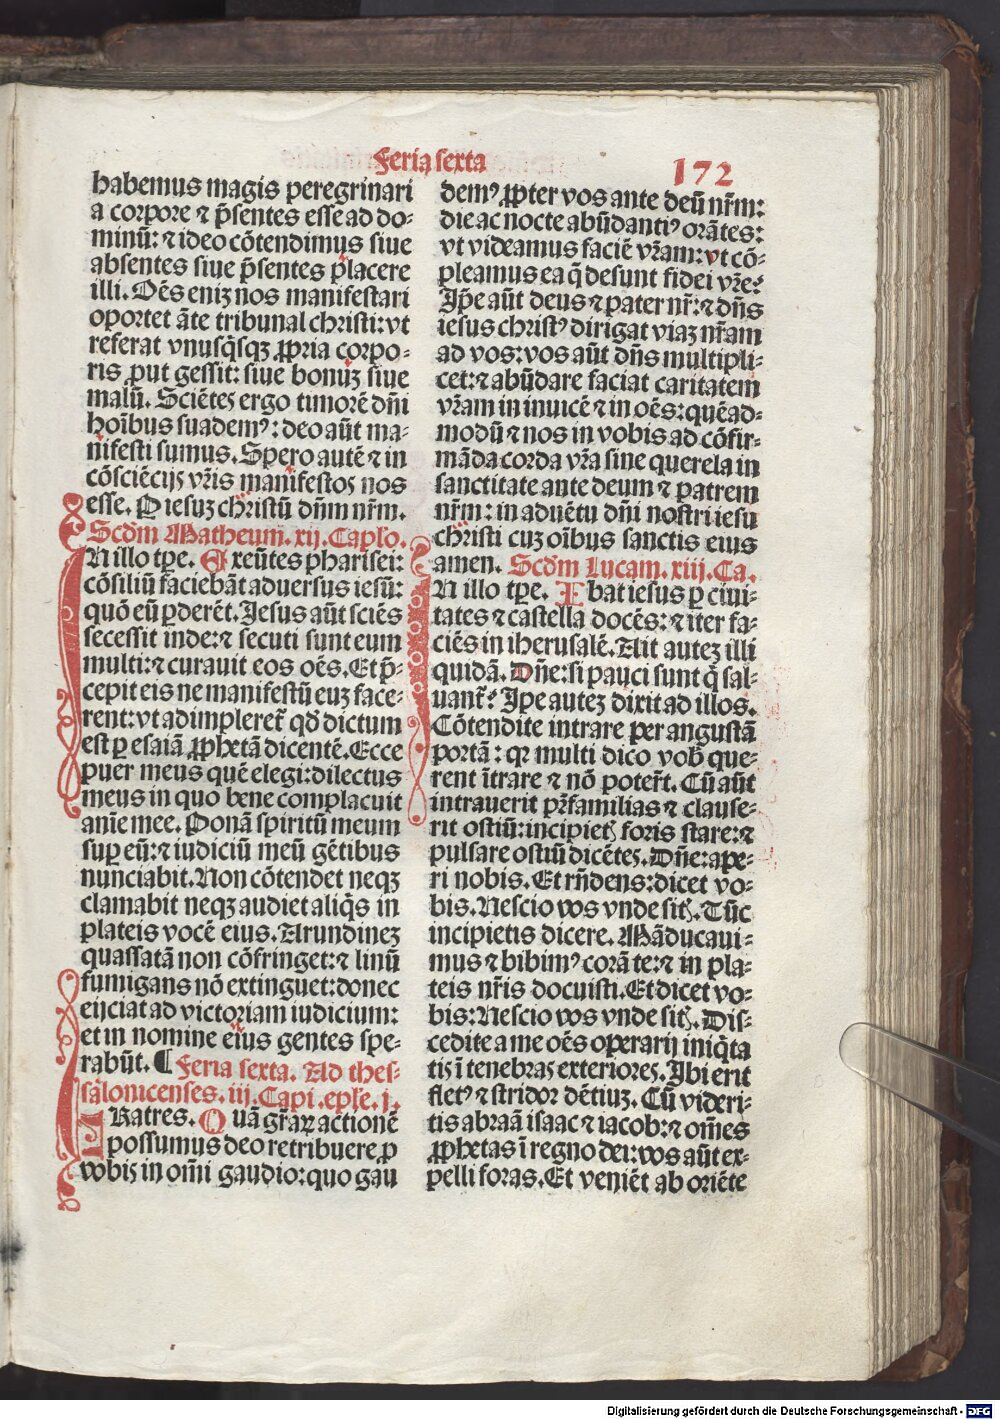 Feria sexta
172
habemus magis peregrinari
a corpore ⁊ p̄sentes esse ad do⸗
minū: ⁊ ideo cōtendimus siue
absentes siue p̄sentes placere
illi. Oēs eniꝫ nos manifestari
oportet āte tribunal christi: vt
referat vnusq̄sqꝫ ꝓpria corpo⸗
ris ꝓut gessit: siue bonuꝫ siue
malū. Sciētes ergo timorē dn̄i
hoībus suademꝰ: deo aūt ma⸗
nifesti sumus. Spero autē ⁊ in
cōsciēcijs vr̄is manifestos nos
esse. P iesuꝫ christū dn̄m nr̄m.
Scd̄m Matheum. xij. Capl̄o.
IN illo tp̄e. Exeūtes pharisei:
cōsiliū faciebāt aduersus iesū:
quō eū ꝑderēt. Iesus aūt sciēs
secessit inde: ⁊ secuti sunt eum
multi: ⁊ curauit eos oēs. Et p̄⸗
cepit eis ne manifestū euꝫ face⸗
rent: vt adimpleret᷑ qd̄ dictum
est ꝑ esaiā ꝓphetā dicentē. Ecce
puer meus quē elegi: dilectus
meus in quo bene complacuit
anīe mee. Ponā spiritū meum
suꝑ eū: ⁊ iudiciū meū gētibus
nunciabit. Non cōtendet neqꝫ
clamabit neqꝫ audiet aliq̄s in
plateis vocē eius. Arundineꝫ
quassatā non cōfringet: ⁊ linū
fumigans nō extinguet: donec
eijciat ad victoriam iudicium:
et in nomine eius gentes spe⸗
rabūt. ¶ Feria sexta. Ad thes⸗
salonicenses. iij. Capi. ep̄le. j.
FRatres. Quā gr̄aꝝ actionē
possumus deo retribuere ꝓ
vobis in om̄i gaudio: quo gau
demꝰ ꝓpter vos ante deū nr̄m:
die ac nocte abūdantiꝰ orātes:
vt videamus faciē vr̄am: vt cō⸗
pleamus ea q̄ desunt fidei vr̄e?
Ip̄e aūt deus ⁊ pater nr̄: ⁊ dn̄s
iesus christꝰ dirigat viaꝫ nr̄am
ad vos: vos aūt dn̄s multipli⸗
cet: ⁊ abūdare faciat caritatem
vr̄am in inuicē ⁊ in oēs: quēad⸗
modū ⁊ nos in vobis ad cōfir⸗
māda corda vr̄a sine querela in
sanctitate ante deum ⁊ patrem
nr̄m: in aduētu dn̄i nostri iesu
christi cuꝫ oībus sanctis eius
amen. Scd̄m Lucam. xiij. Ca.
IN illo tp̄e. Ibat iesus ꝑ ciui⸗
tates ⁊ castella docēs: ⁊ iter fa⸗
ciēs in iherusalē. Ait auteꝫ illi
quidā. Dn̄e: si pauci sunt q̄ sal⸗
uant᷑? Ip̄e auteꝫ dixit ad illos.
Cōtendite intrare per angustā
portā: qꝛ multi dico vob̄ que⸗
rent ītrare ⁊ nō poter̄t. Cū aūt
intrauerit pr̄familias ⁊ clause⸗
rit ostiū: incipietꝭ foris stare: ⁊
pulsare ostiū dicētes. Dn̄e: ape⸗
ri nobis. Et rn̄dens: dicet vo⸗
bis. Nescio vos vnde sitꝭ. Tūc
incipietis dicere. Māducaui⸗
mus ⁊ bibimꝰ corā te: ⁊ in pla⸗
teis nr̄is docuisti. Et dicet vo⸗
bis: Nescio vos vnde sitꝭ. Dis⸗
cedite a me oēs operarij iniq̄ta
tis ī tenebras exteriores. Ibi erit
fletꝰ ⁊ stridor dētiuꝫ. Cū videri⸗
tis abraā isaac ⁊ iacob: ⁊ om̄es
ꝓphetas ī regno dei: vos aūt ex⸗
pelli foras. Et veniēt ab oriēte
Digitalisierung gefördert durch die Deutsche Forschungsgemeinschaft - DFG